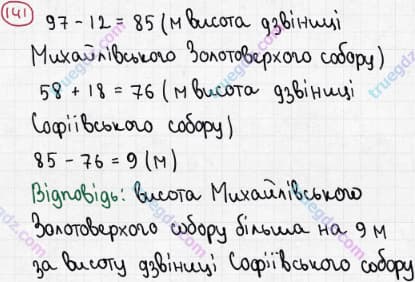 141
97 - 12 = 85 (м висота дзвіниці
Михайлівського Золотоверхого собору)
58 + 18 = 76 (м висота дзвіниці
Софіївського собору)
85 - 76 = 9 (м)
Відповідь: висота Михайлівського
Золотоверхого собору більша на 9 м
за висоту дзвіниці Софіївського собору
truegdz.com
truegdz.com
truegdz.com
truegdz.com
truegdz.com